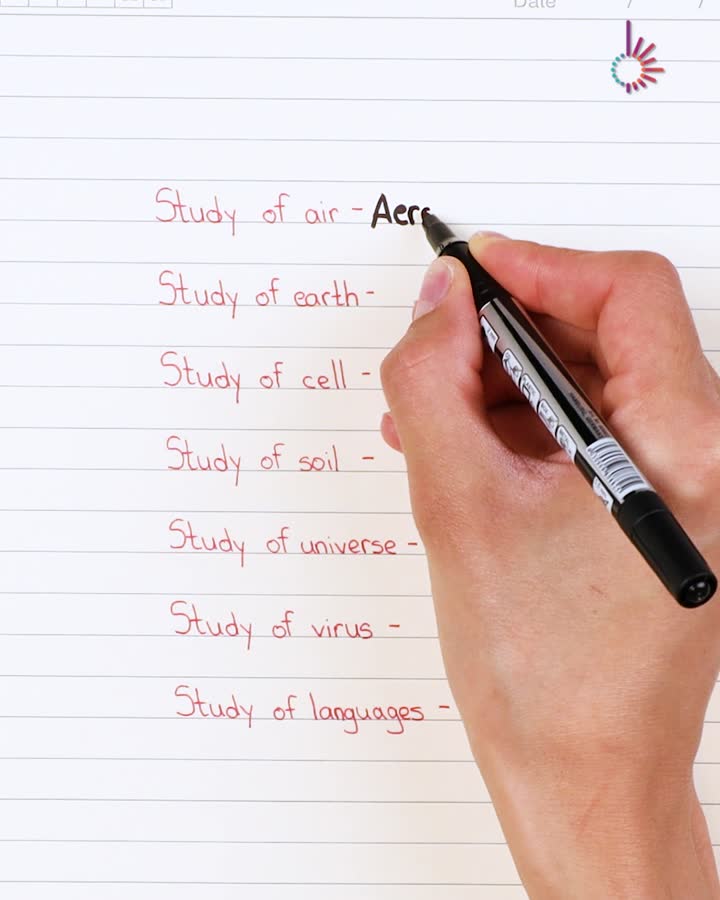 Date / /
Study of air - Aero
Study of earth -
Study of cell -
Study of soil -
Study of universe -
Study of virus -
Study of languages -